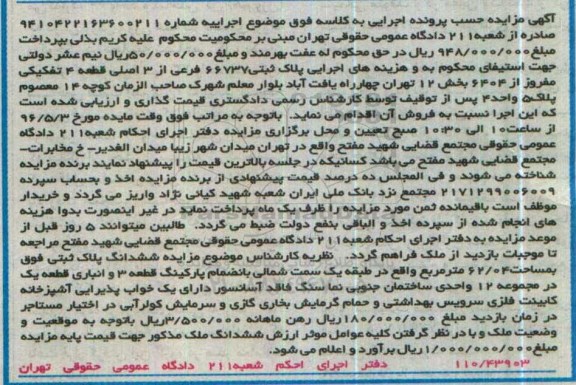 آگهی مزایده حسب پرونده اجرایی به کلاسه فوق موضوع اجراییه شماره ۹۴۱۰۴۲۲۱۶۳۶۰۰۲۱۱
صادره از شعبه۲۱۱ دادگاه عمومی حقوقی تهران مبنی بر محکومیت محکوم علیه کریم بذلی بپرداخت
مبلغ۹۴۸/۰۰۰/۰۰۰ ریال در حق محکوم له عفت بهرمند و مبلغ۵۰/۰۰۰/۰۰۰ریال نیم عشر دولتی
جهت استیفای محکوم به و هزینه های اجرایی پلاک ثبتی۶۶۷۳۷ فرعی از ۳ اصلی قطعه ۴ تفکیکی
مفروز از ۶۴۰۴ بخش ۱۲ تهران چهارراه یافت آباد بلوار معلم شهرک صاحب الزمان کوچه ۱۴ معصوم
پلاک۵ واحد۴ پس از توقیف توسط کارشناس رسمی دادگستری قیمت گذاری و ارزیابی شده است
که این اجرا نسبت به فروش آن اقدام می نماید. باتوجه به مراتب فوق وقت مایده مورخ ۹۶/۵/۳
از ساعت۱۰ الی ۱۰:۳۰ صبح تعیین و محل برگزاری مزایده دفتر اجرای احکام شعبه۲۱۱ دادگاه
عمومی حقوقی مجتمع قضایی شهید مفتح واقع در تهران میدان شهر زیبا میدان الغدیر- خ مخابرات-
مجتمع قضایی شهید مفتح می باشد کسانیکه در جلسه بالاترین قیمت را پیشنهاد نمایند برنده مزایده
شناخته می شوند و فی المجلس ده درصد قیمت پیشنهادی از برنده مزایده اخذ و بحساب سپرده
۲۱۷۱۲۹۹۰۰۶۰۰۹ مجتمع نزد بانک ملی ایران شعبه شهید کیانی نژاد واریز می گردد و خریدار
موظف است باقیمانده ثمن مورد مزایده را ظرف یک ماه پرداخت نماید در غیر اینصورت بدوا هزینه
های انجام شده از سپرده اخذ و الباقی بنفع دولت ضبط می گردد. طالبین میتوانند ۵ روز قبل از
موعد مزایده به دفتر اجرای احکام شعبه۲۱۱ دادگاه عمومی حقوقی مجتمع قضایی شهید مفتح مراجعه
تا موجبات بازدید از ملک فراهم گردد. نظریه کارشناس موضوع مزایده ششدانگ پلاک ثبتی فوق
بمساحت۶۲/۰۴ مترمربع واقع در طبقه یک سمت شمالی بانضمام پارکینگ قطعه ۳ و انباری قطعه یک
در مجموعه ۱۲ واحدی ساختمان جنوبی نما سنگ فاقد آسانسور دارای یک خواب پذیرایی آشپزخانه
کابینت فلزی سرویس بهداشتی و حمام گرمایش بخاری گازی و سرمایش کولرآبی در اختیار مستاجر
در زمان بازدید مبلغ ۱۸۰/۰۰۰/۰۰۰ریال رهن ماهانه ۳/۵۰۰/۰۰۰ریال باتوجه به موقعیت و
وضعیت ملک و با در نظر گرفتن کلیه عوامل موثر ارزش ششدانگ ملک مذکور جهت قیمت پایه مزایده
مبلغ۱/۰۰۰/۰۰۰/۰۰۰ریال برآورد و اعلام می شود.
۱۱۰/۴۳۹۰۳ دفتر اجرای احکم شعبه۲۱۱ دادگاه عمومی حقوقی تهران